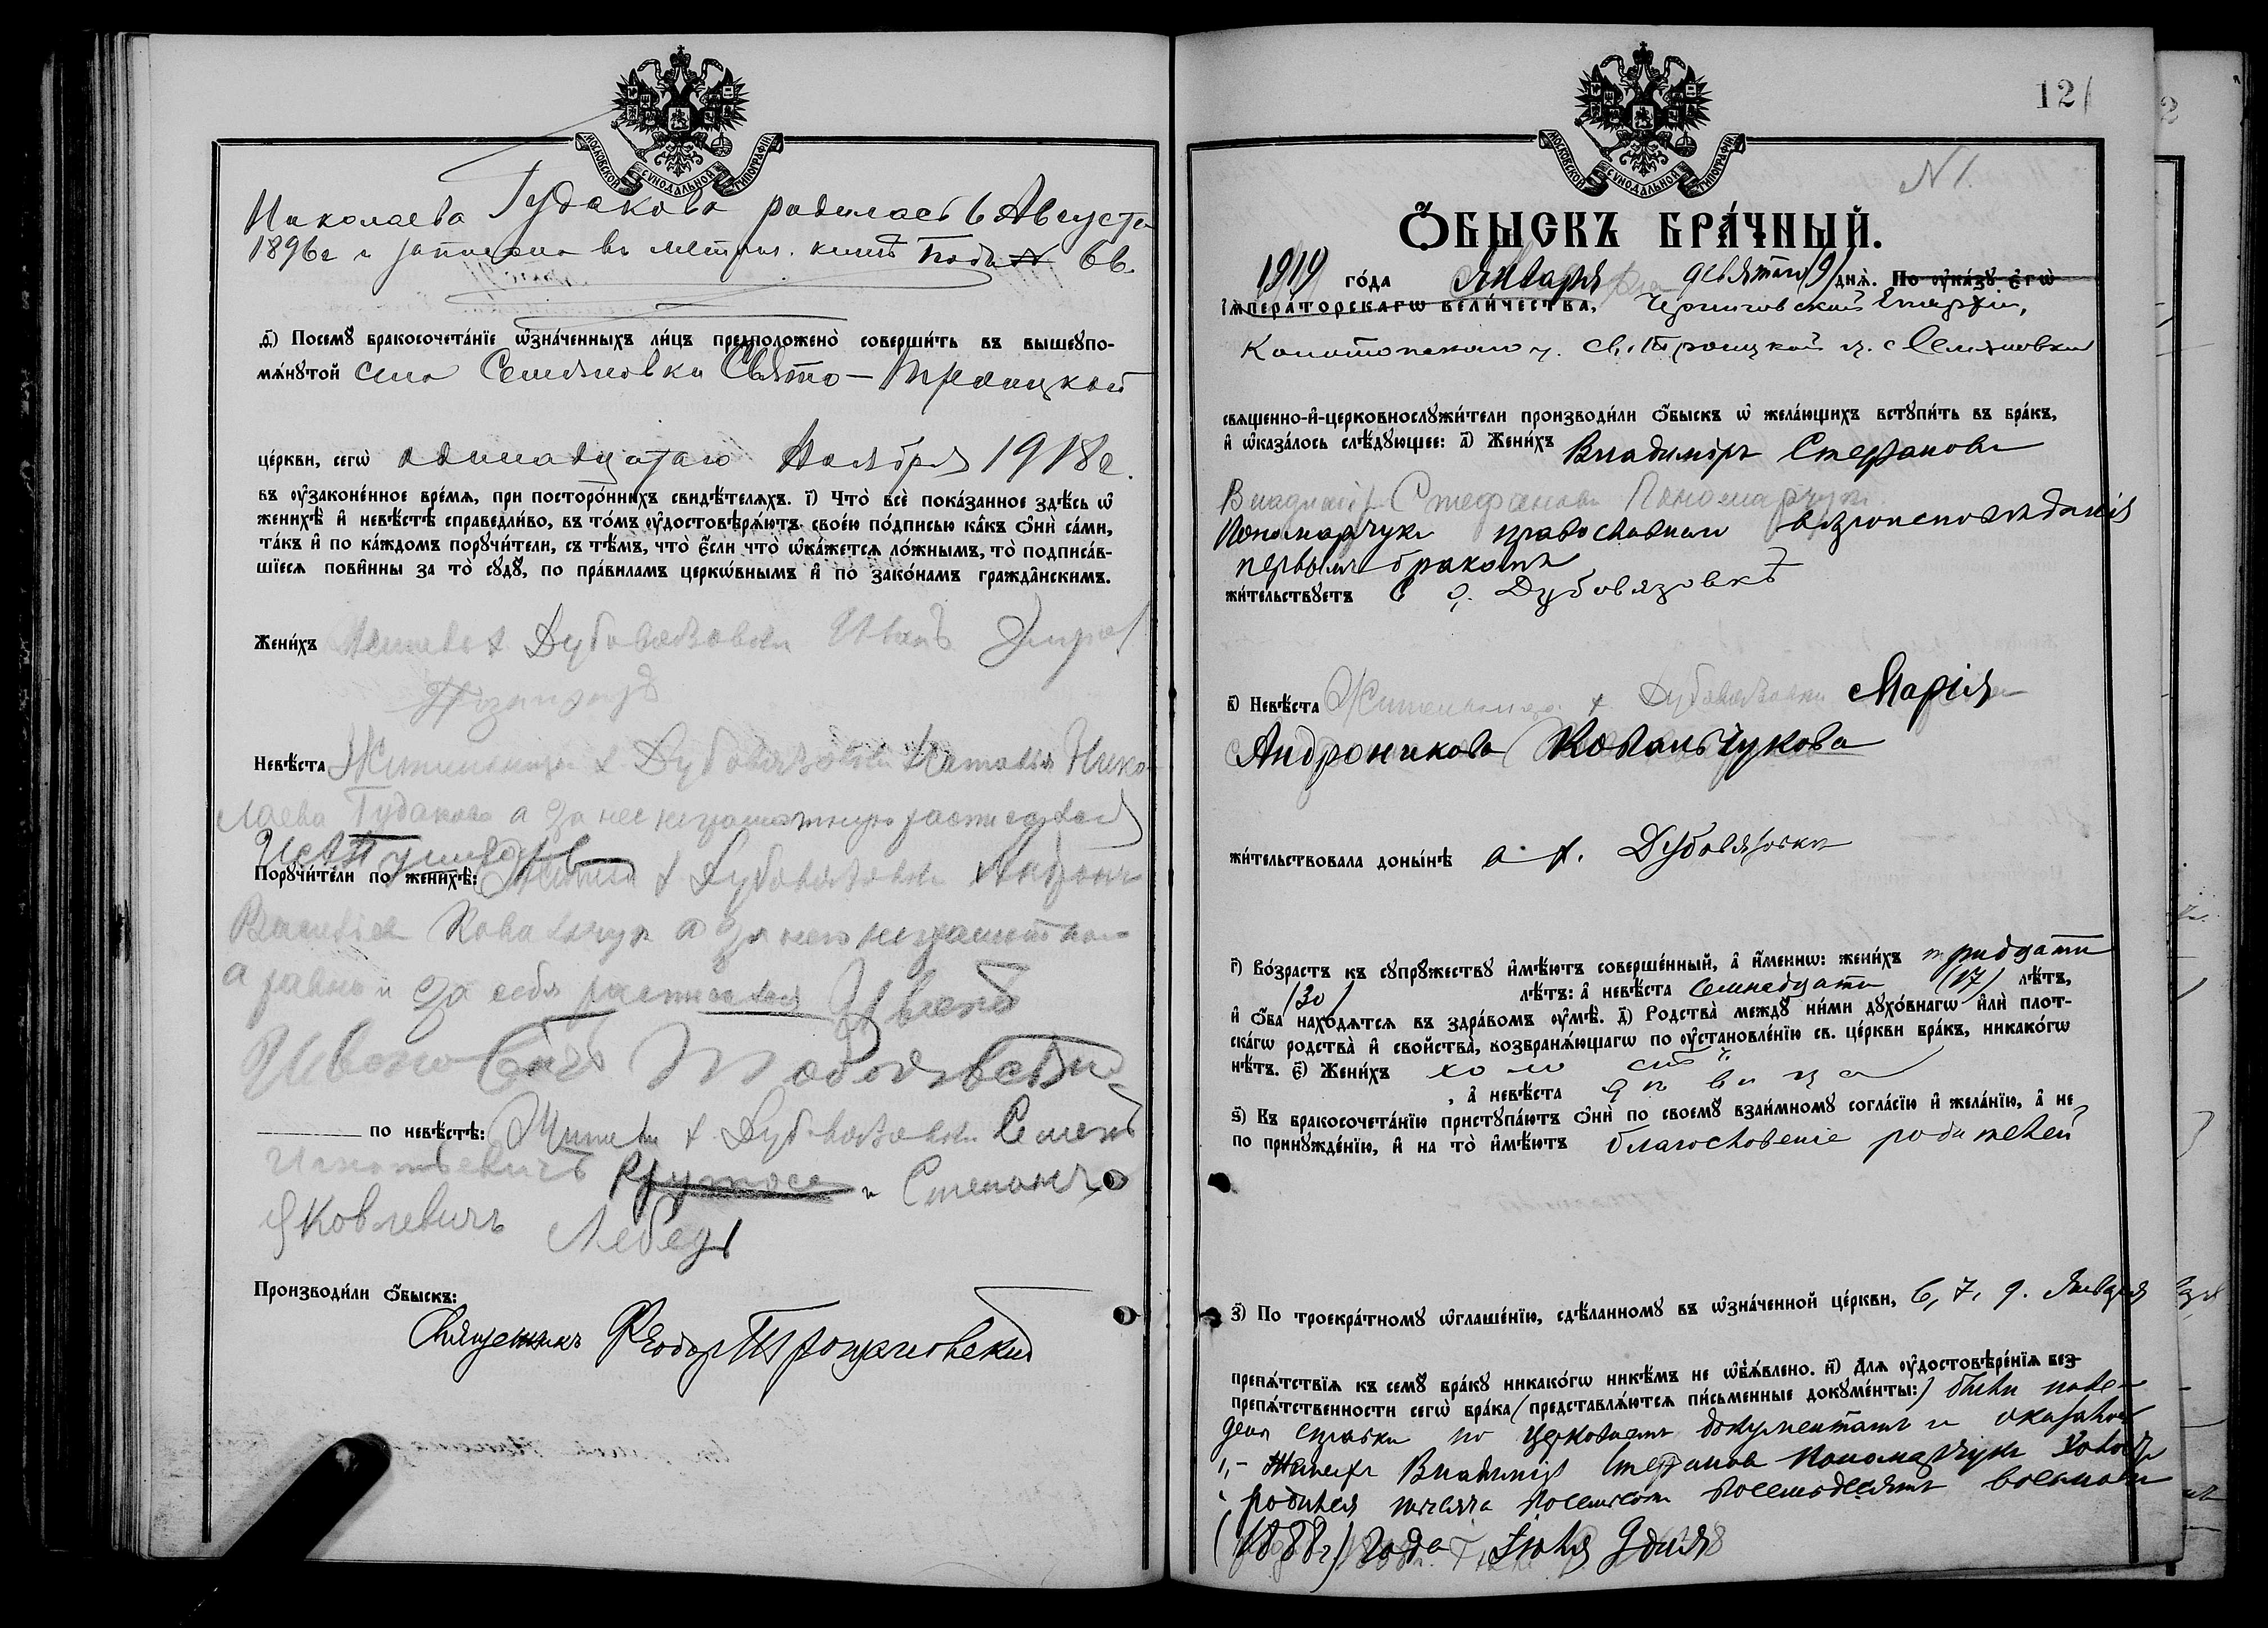 МОСКОВСКОЙ СѴНОДАЛЬНОЙ ТИПОГРАФІИ
Николаева Гудакова родилась 6 Августа
1896г и записана въ метрич. книгѣ подъ № 66.
д҃) Посемꙋ бракосочета́нїе ѡ҆зна́ченныхъ ли́цъ предположено̀ соверши́ть въ вышеꙋпо-
мѧ́нꙋтой села Семяновки Свято-Троицкой
це́ркви, сегѡ̀ одинадцатаго Ноября 1918г.
въ ᲂу҆законе́нное вре́мѧ, при посторо́ннихъ свидѣ́телѧхъ. і҃) Что̀ всѐ пока́занное здѣ́сь ѡ҆
женихѣ̀ и҆ невѣ́стѣ справедли́во, въ то́мъ ᲂу҆достовѣрѧ́ютъ свое́ю по́дписью ка́къ ѻ҆нѝ са́ми,
та́къ и҆ по ка́ждомъ порꙋчи́тели, съ тѣ́мъ, что̀ є҆́сли что̀ ѡ҆ка́жетсѧ ло́жнымъ, то̀ подписа́в-
шїесѧ пови́нны за то̀ сꙋдꙋ̀, по пра́виламъ церкѡ́внымъ и҆ по зако́намъ гражда̑нскимъ.
Жени́хъ х Дубовязовки Иванъ
Невѣ́ста Жительница х. Дубовязовки Наталія Нико-
лаева Гудакова а за нее неграмотную росписался
Порꙋчи́тели по женихѣ̀: х Дубовязовки
Ковальчук а за него неграмотного
а равно и за себя росписался Иванъ
по невѣ́стѣ: х. Дубовязовки Семенъ
Игнатьевичъ и Степанъ
Яковлевичъ Лебедь
Производи́ли ѻ҆́быскъ:
Священникъ Ѳеодор Троцкловский
121
МОСКОВСКОЙ СѴНОДАЛЬНОЙ ТИПОГРАФІИ
N 1.
Ѻ҆́БЫСКЪ БРА́ЧНЫЙ.
1919 го́да Января девятаго (9) днѧ̀. По ᲂу҆ка́зꙋ є҆гѡ̀
І҆мпера́торскагѡ вели́чества, Черниговской Епархіи,
Конотопскаго у. Св. Троицкой ц. с Семяновки
свѧще́нно-и҆-церковнослꙋжи́тели производи́ли ѻ҆́быскъ ѡ҆ жела́ющихъ встꙋпи́ть въ бра́къ,
и҆ ѡ҆каза́лось слѣ́дꙋющее: а҃) Жени́хъ Владиміръ Стефановъ
Владиміръ Стефановъ Пономарчукъ
Пономарчукъ православнаго вѣроисповѣданія
первымъ бракомъ
жи́тельствꙋетъ в х. Дубовязовкѣ
в҃) Невѣ́ста Жительница х. Дубовязовки Марія
Андроникова Ковальчукова
жи́тельствовала доны́нѣ в х. Дубовязовки
г҃) Во́зрастъ къ сꙋпрꙋ́жествꙋ и҆мѣ́ютъ соверше́нный, а҆ и҆́меннѡ: жени́хъ тридцати
(30) лѣ́тъ: а҆ невѣ́ста семнадцати (17) лѣ́тъ,
и҆ ѻ҆́ба нахо́дѧтсѧ въ здра́вомъ ᲂу҆мѣ̀. д҃) Родства̀ междꙋ̀ ни́ми дꙋхо́внагѡ и҆лѝ плот-
ска́гѡ родства̀ и҆ сво́йства̀, возбранѧ́ющагѡ по ᲂу҆становле́нїю св. це́ркви бра́къ, никако́гѡ
нѣ́тъ. є҃) Жени́хъ холостъ
, а҆ невѣ́ста дѣвица
ѕ҃) Къ бракосочета́нїю пристꙋпа́ютъ ѻ҆нѝ по своемꙋ̀ взаи́мномꙋ согла́сїю и҆ жела́нїю, а҆ не
по принꙋжде́нїю, и҆ на то̀ и҆мѣ́ютъ благословеніе родителей
з҃) По троекра́тномꙋ ѡ҆глаше́нїю, сдѣ́ланномꙋ въ ѡ҆зна́ченной це́ркви, 6, 7, 9. Января
препѧ́тствїѧ къ семꙋ̀ бра́кꙋ никако́гѡ никѣ́мъ не ѡ҆б̾ѧ́влено. и҃) Длѧ ᲂу҆достовѣре́нїѧ без-
препѧ́тственности сегѡ̀ бра́ка (представлѧ́ютсѧ пи́сьменные докꙋме́нты:) были наве-
дены справки по церковнымъ документамъ и оказалось
1,- Женихъ Владиміръ Стефановъ Пономарчукъ холостъ
родился тысяча восемьсотъ восемьдесятъ восьмого
(1888г) года Іюля 9 дня